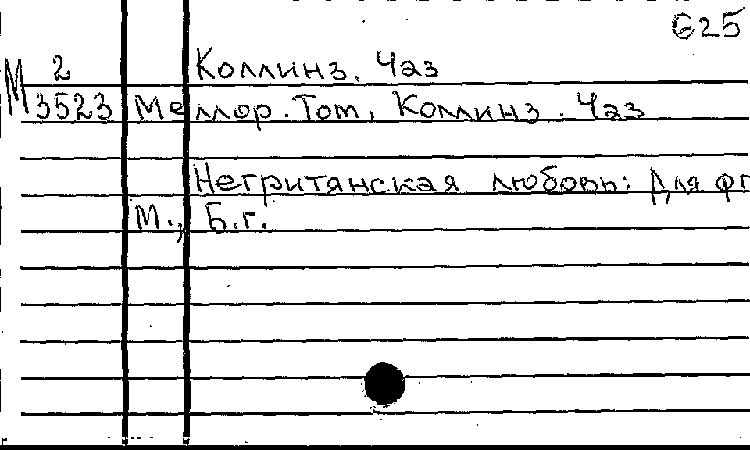 625
М 2 Коллинз. Чаз
3523 Меллор. Том, Коллинз. Чаз
Негританская любовь: Для фп
М., Б.г.